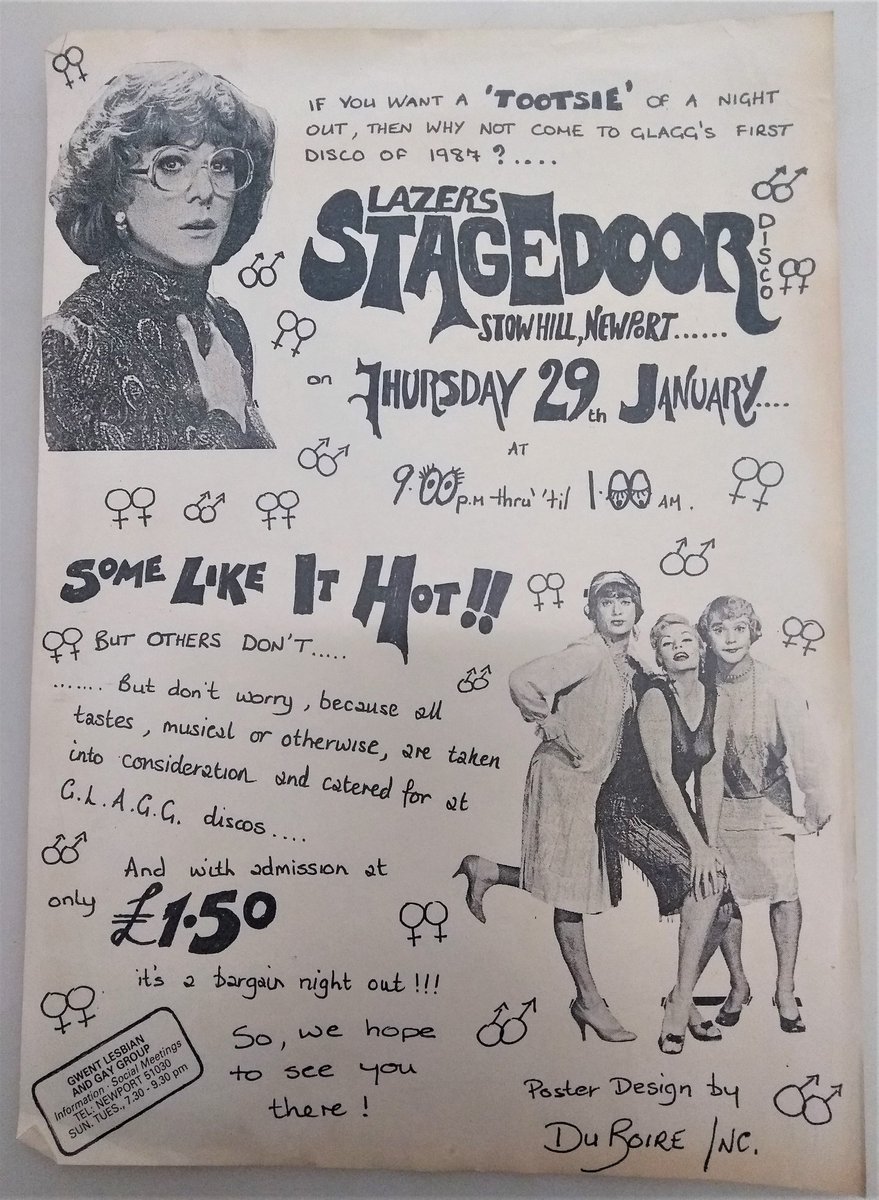 IF YOU WANT A 'TOOTSIE' OF A NIGHT
OUT, THEN WHY NOT COME TO GLAGG'S FIRST
DISCO OF 1987 ?....
LAZERS
STAGEDOOR
DISCO
STOW HILL, NEWPORT......
on THURSDAY 29th JANUARY....
AT
9.00 p.m thru' 'til 1.00 AM.
SOME LIKE IT HOT!!
BUT OTHERS DON'T.....
....... But don't worry, because all
tastes, musical or otherwise, are taken
into consideration and catered for at
G.L.A.G.G. discos....
And with admission at
only £1.50
it's a bargain night out !!!
So, we hope
to see you
there !
GWENT LESBIAN
AND GAY GROUP
Information - Social Meetings
TEL: NEWPORT 51030
SUN. TUES., 7.30 - 9.30 pm
Poster Design by
DuBOIRE INC.